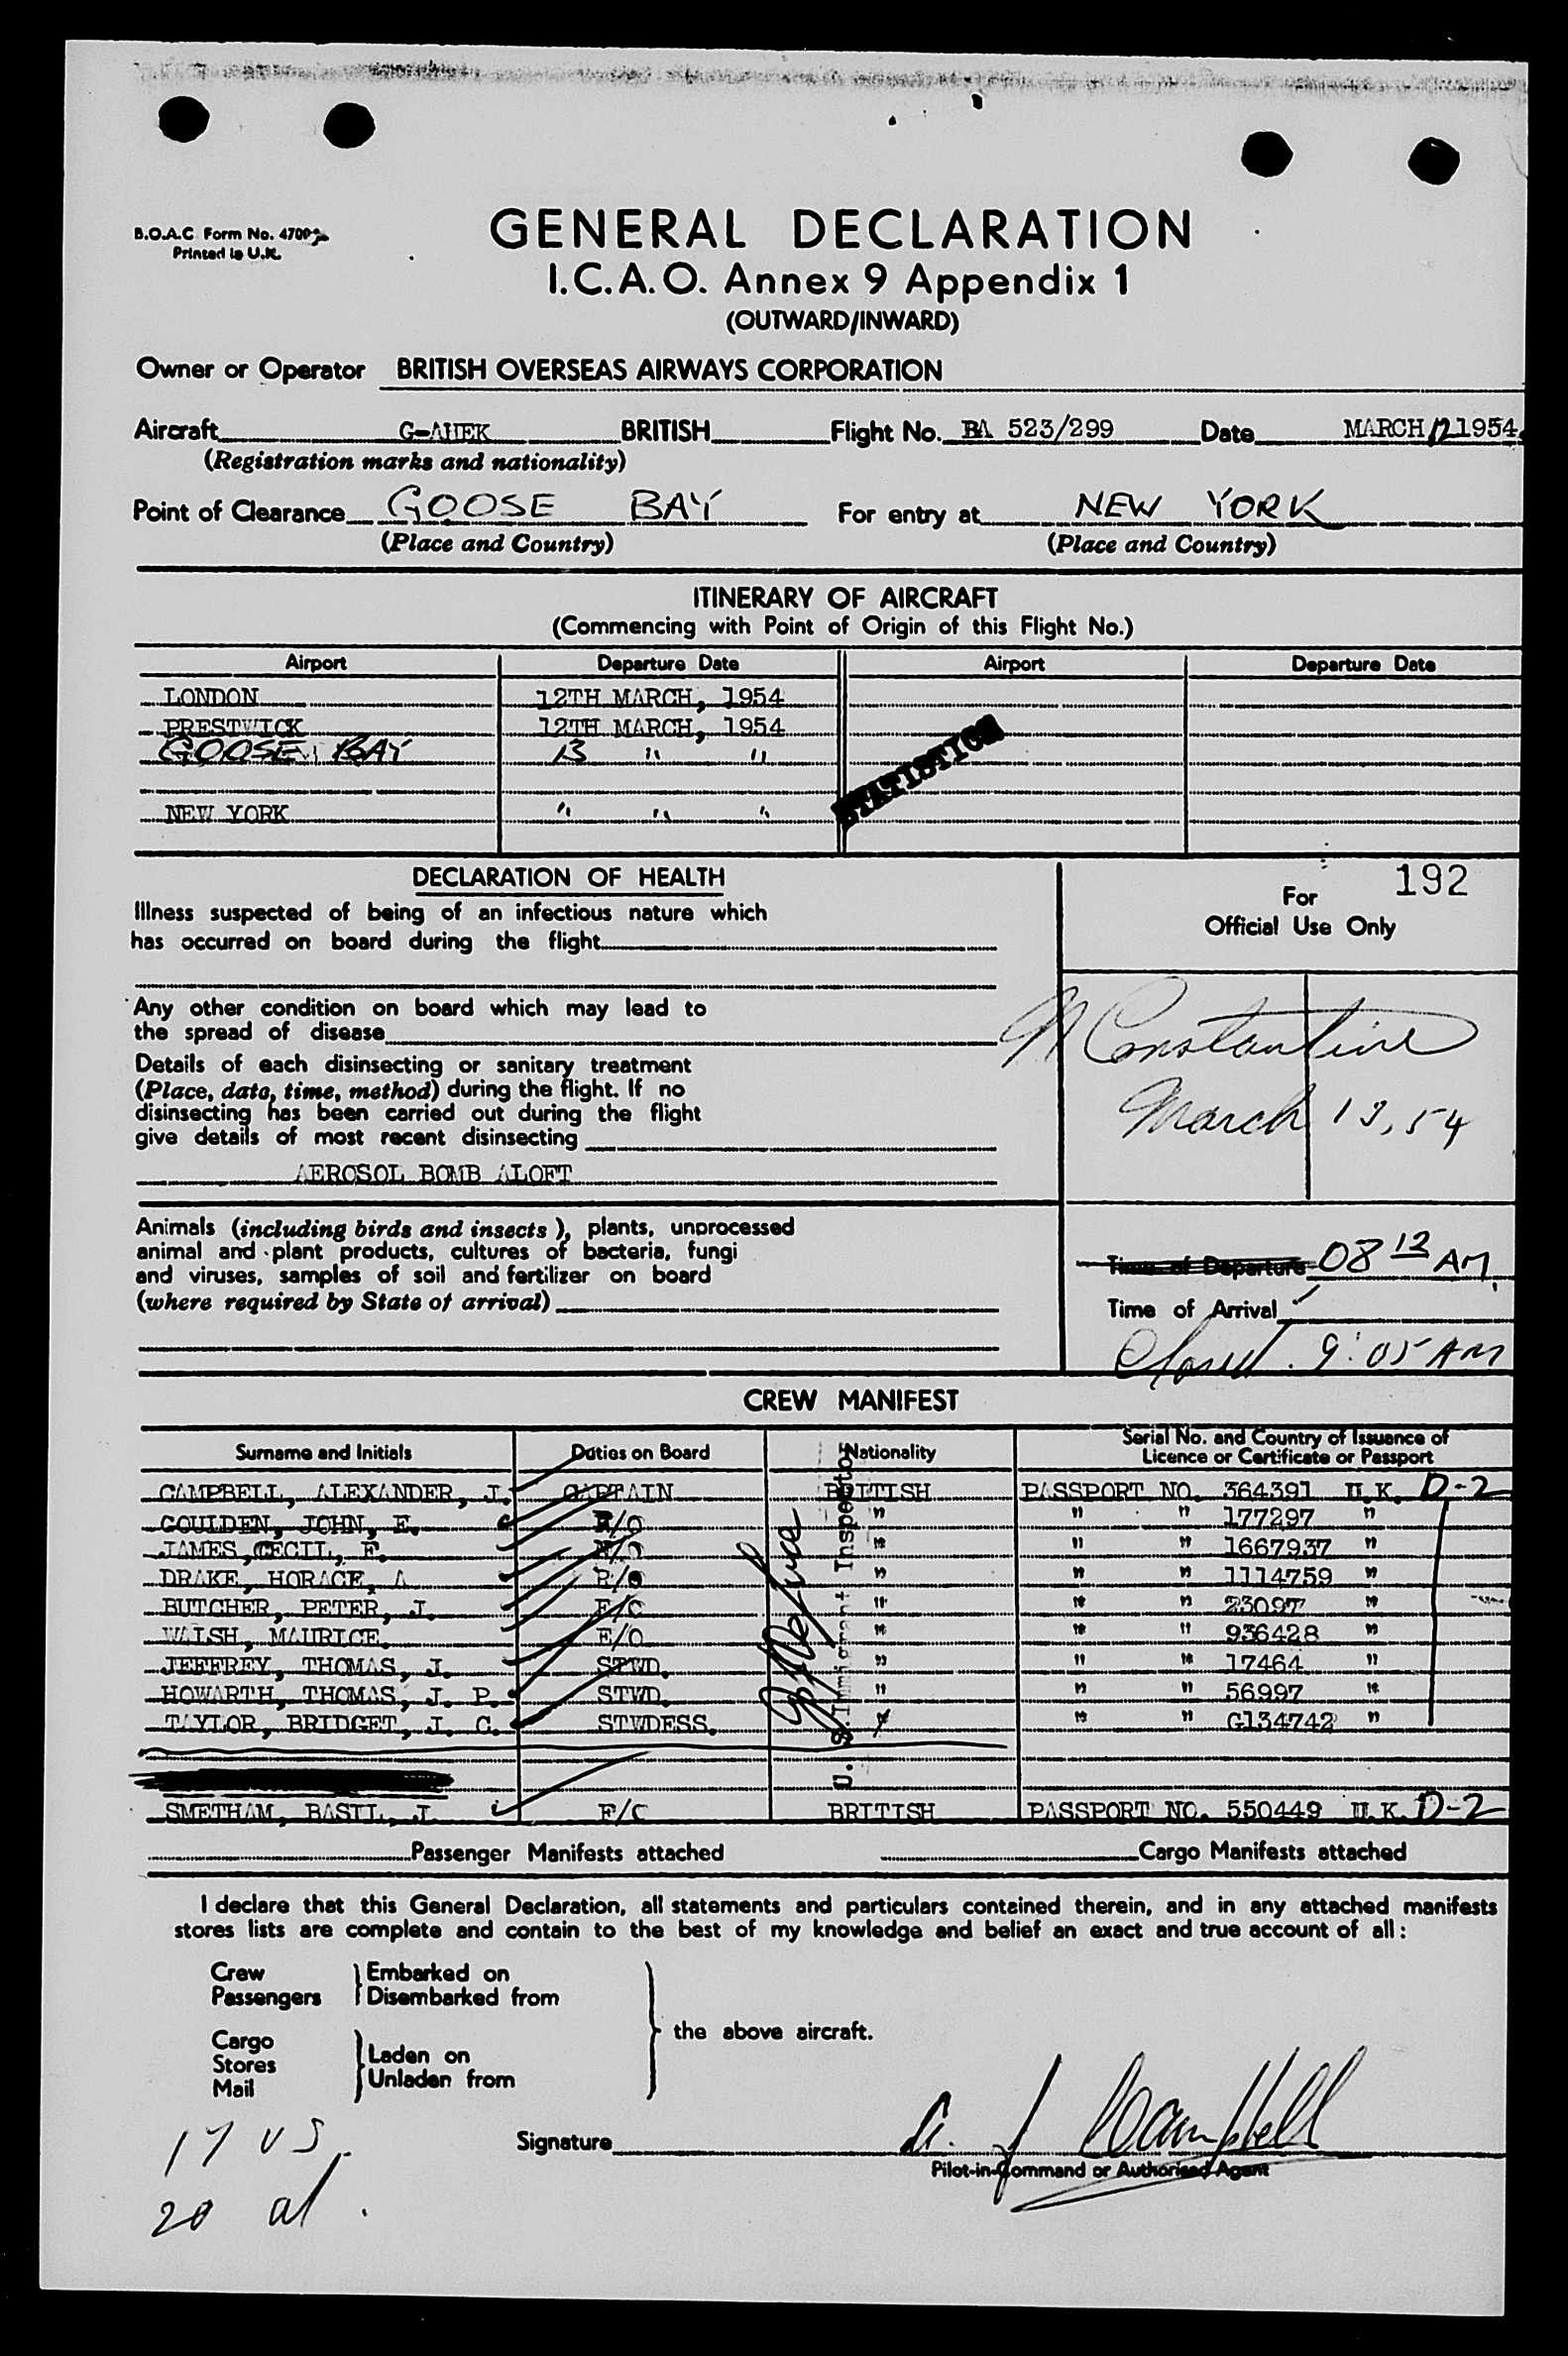 B.O.A.C Form No. 4700
Printed in U.K.
GENERAL DECLARATION
I.C.A.O. Annex 9 Appendix 1
(OUTWARD/INWARD)
Owner or Operator BRITISH OVERSEAS AIRWAYS CORPORATION
Aircraft G-AHEK BRITISH Flight No. BA 523/299 Date MARCH 12 1954
(Registration marks and nationality)
Point of Clearance GOOSE BAY For entry at NEW YORK
(Place and Country) (Place and Country)
ITINERARY OF AIRCRAFT
(Commencing with Point of Origin of this Flight No.)
Airport Departure Date Airport Departure Date
LONDON 12TH MARCH, 1954
PRESTWICK 12TH MARCH, 1954
GOOSE BAY 13 " "
STATISTICS
NEW YORK " " "
DECLARATION OF HEALTH
Illness suspected of being of an infectious nature which
has occurred on board during the flight
Any other condition on board which may lead to
the spread of disease
Details of each disinsecting or sanitary treatment
(Place, date, time, method) during the flight. If no
disinsecting has been carried out during the flight
give details of most recent disinsecting
AEROSOL BOMB ALOFT
Animals (including birds and insects), plants, unprocessed
animal and plant products, cultures of bacteria, fungi
and viruses, samples of soil and fertilizer on board
(where required by State of arrival)
For 192
Official Use Only
Constantine
March 13, 54
Time of Departure 08 12 AM
Time of Arrival
Closed. 9:05 AM
CREW MANIFEST
Surname and Initials Duties on Board Nationality Serial No. and Country of Issuance of
Licence or Certificate or Passport
CAMPBELL, ALEXANDER, J. CAPTAIN BRITISH PASSPORT NO. 364391 U.K. D-2
GOULDEN, JOHN, E. /O " " " 177297 "
JAMES, CECIL, F. N/O " " " 1667937 "
DRAKE, HORACE, A R/O " " " 1114759 "
BUTCHER, PETER, J. F/C " " " 23097 "
WALSH, MAURICE. E/O " " " 936428 "
JEFFREY, THOMAS, J. STWD. " " " 17464 "
HOWARTH, THOMAS, J. P. STWD. " " " 56997 "
TAYLOR, BRIDGET, J. C. STWDESS. " " " G134742 "
U. S. Immigrant Inspector
SMETHAM, BASIL, J. F/C BRITISH PASSPORT NO. 550449 U.K. D-2
Passenger Manifests attached Cargo Manifests attached
I declare that this General Declaration, all statements and particulars contained therein, and in any attached manifests
stores lists are complete and contain to the best of my knowledge and belief an exact and true account of all:
Crew
Passengers
Embarked on
Disembarked from
Cargo
Stores
Mail
Laden on
Unladen from
the above aircraft.
17 US.
20 al.
Signature A. J Campbell
Pilot-in-Command or Authorised Agent